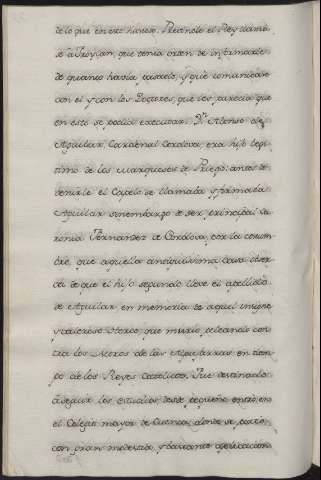 de lo que en esto huviese. Rectole el Rey llama
se à Troylan, que tenia orden de informarle
de quanto havia pasado, y què comunicase
con el y con los Doctores que les parecia que
en esto se podia executar. Dn. Alonso de
Aguilar, Cardenal Cordova, era hijo legi
timo de los Marqueses de Priego: antes de
venirle el Capelo se llamaba y firmaba
Aguilar sin embargo de ser principal va
ronia Fernandez de Cordova, por la costum
bre, que aquella antiquissima casa obser
ba de que el hijo segundo lleve el apellido
de Aguilar en memoria de aquel insigne
y valeroso Heroe que murio peleando con
tra los Moros de las Alpujarras en tiem
po de los Reyes Catolicos. Fue destinado
à seguir los estudios desde pequeño entrò en
el Colegio mayor de Cuenca, donde se portò
con gran modestia y bastante aplicacion